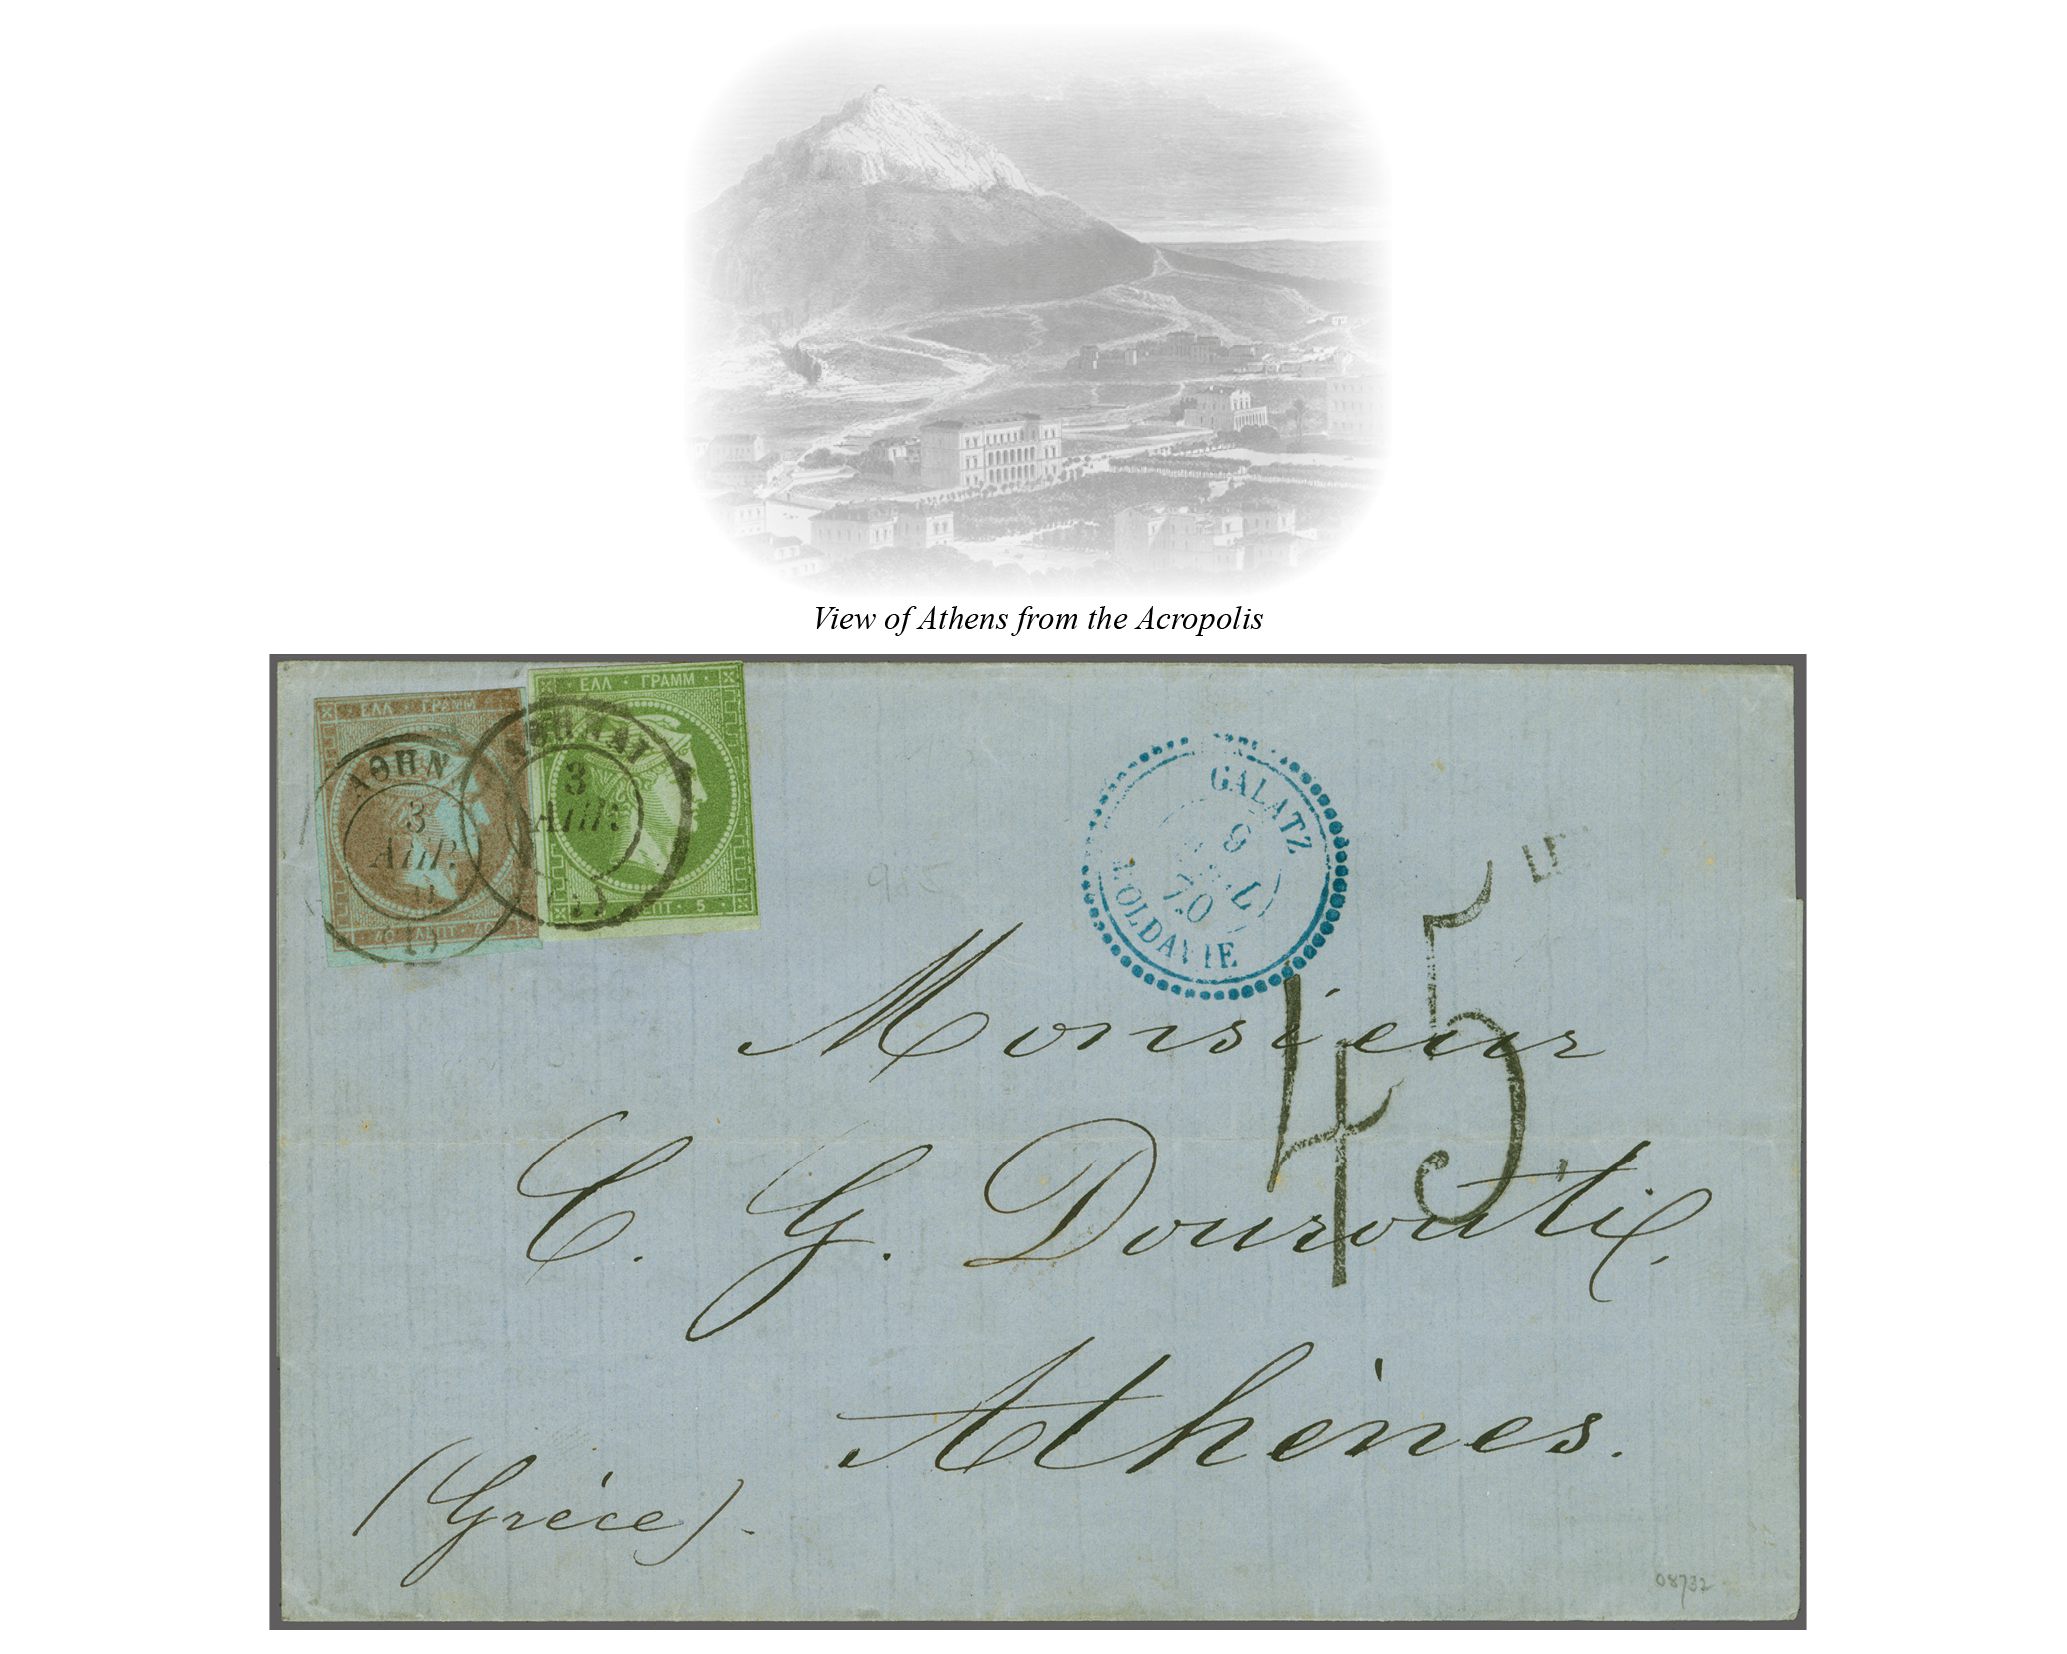 View of Athens from the Acropolis
ΕΛΛ · ΓΡΑΜΜ
ΑΘΗΝ
3
ΑΠΡ.
40 ΛΕΠΤ · 40
ΕΛΛ · ΓΡΑΜΜ
ΑΘΗΝΑΙ
3
ΑΠΡ.
ΛΕΠΤ · 5
GALATZ
70
MOLDAVIE
45
Monsieur
C. G. Douroutti,
Athènes.
(Grèce).
08732